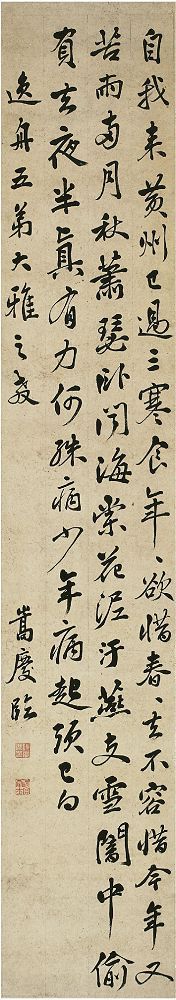 自我来黄州已過三寒食年〻欲惜春〻去不容惜今年又
苦雨兩月秋蕭瑟卧聞海棠花泥汙燕支雪闇中偷
負去夜半真有力何殊病少年病起須已白
逸舟五弟大雅之教
嵩慶臨